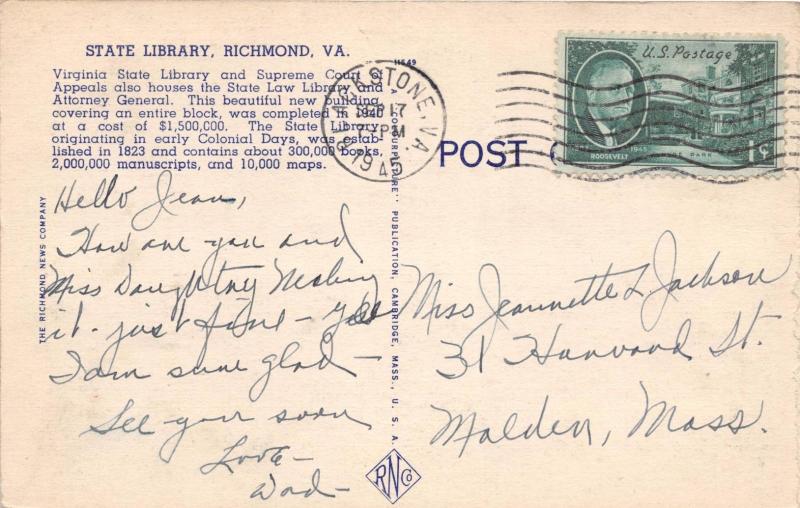 STATE LIBRARY, RICHMOND, VA.
Virginia State Library and Supreme Court of
Appeals also houses the State Law Library and
Attorney General. This beautiful new building
covering an entire block, was completed in 1940
at a cost of $1,500,000. The State Library
originating in early Colonial Days, was estab-
lished in 1823 and contains about 300,000 books,
2,000,000 manuscripts, and 10,000 maps.
THE RICHMOND NEWS COMPANY
Hello Jean,
How are you and
Miss Daughtrey
it. just fine - Yes
I am sure glad -
See you soon
Love -
Dad -
11649
"COLOURPICTURE" PUBLICATION, CAMBRIDGE, MASS., U. S. A.
RNCo
BLACKSTONE, VA.
SEP 17
PM
194
POST
U.S. Postage
ROOSEVELT
1945
HYDE PARK
1¢
Miss Jeannette L Jackson
31 Harvard St.
Malden, Mass.